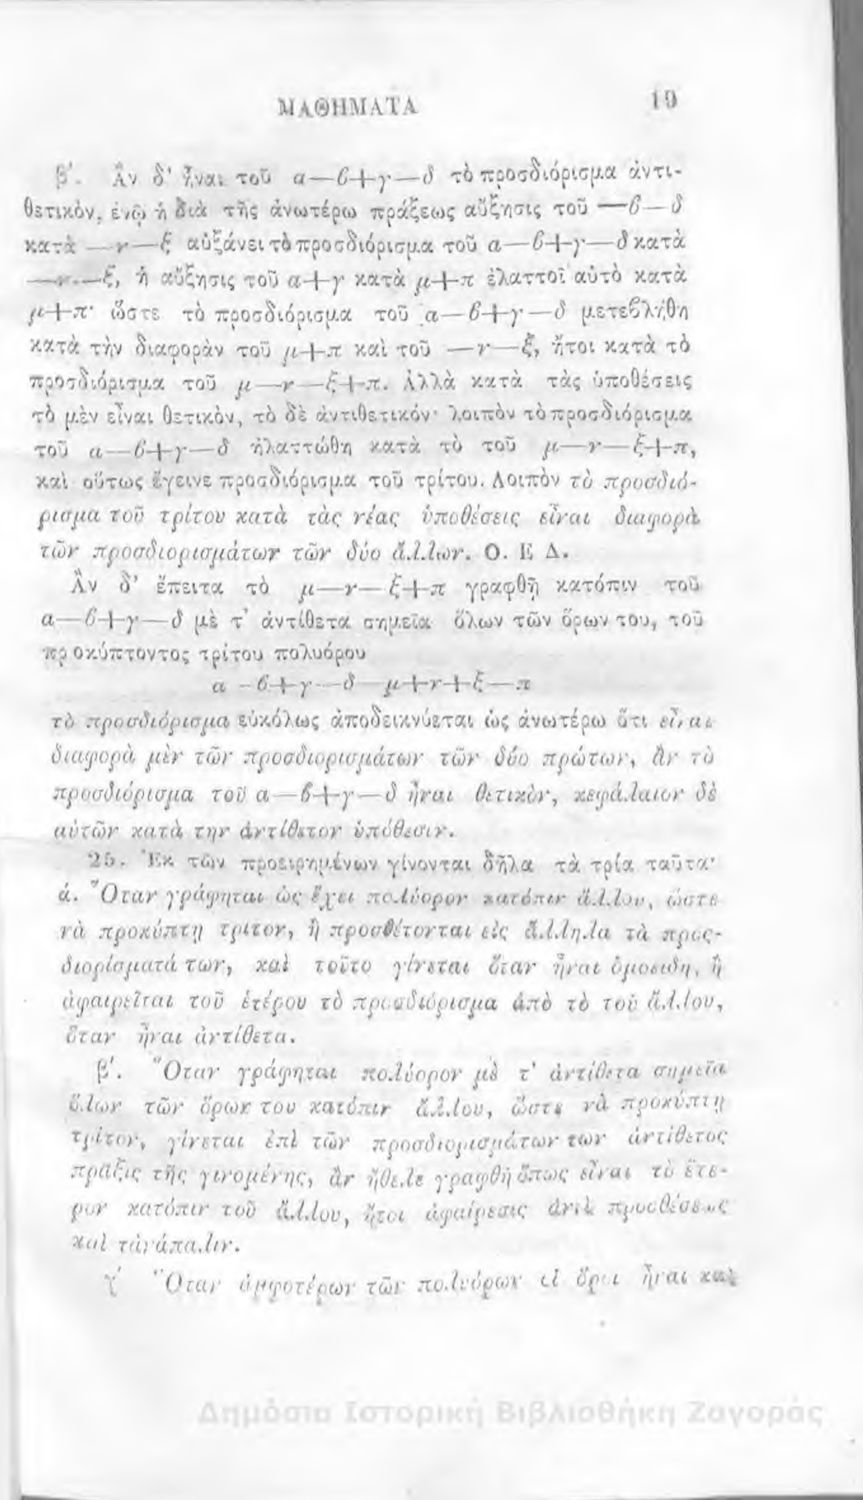 ΜΑΘΗΜΑΤΑ 19
β΄. Ἂν δ' ἦναι τοῦ α—β+γ—δ τὸ προσδιόρισμα ἀντι-
θετικὸν, ἐνῷ ἡ διὰ τῆς ἀνωτέρω πράξεως αὔξησις τοῦ —β—δ
κατὰ —ν—ξ αὐξάνει τὸ προσδιόρισμα τοῦ α—β+γ—δ κατὰ
—ν—ξ, ἡ αὔξησις τοῦ α+γ κατὰ μ+π ἐλαττοῖ αὐτὸ κατὰ
μ+π· ὥστε τὸ προσδιόρισμα τοῦ α—β+γ—δ μετεβλήθη
κατὰ τὴν διαφορὰν τοῦ μ+π καὶ τοῦ —ν—ξ, ἤτοι κατὰ τὸ
προσδιόρισμα τοῦ μ—ν—ξ+π. Ἀλλὰ κατὰ τὰς ὑποθέσεις
τὸ μὲν εἶναι θετικὸν, τὸ δὲ ἀντιθετικόν· λοιπὸν τὸ προσδιόρισμα
τοῦ α—β+γ—δ ἠλαττώθη κατὰ τὸ τοῦ μ—ν—ξ+π,
καὶ οὕτως ἔγεινε προσδιόρισμα τοῦ τρίτου. Λοιπὸν τὸ προσδιό-
ρισμα τοῦ τρίτου κατὰ τὰς νέας ὑποθέσεις εἶναι διαφορὰ
τῶν προσδιορισμάτων τῶν δύο ἄλλων. Ο. Ε Δ.
Ἂν δ' ἔπειτα τὸ μ—ν—ξ+π γραφθῇ κατόπιν τοῦ
α—β+γ—δ μὲ τ' ἀντίθετα σημεῖα ὅλων τῶν ὅρων του, τοῦ
προκύπτοντος τρίτου πολυόρου
α—β+γ—δ—μ+ν+ξ—π
τὸ προσδιόρισμα εὐκόλως ἀποδεικνύεται ὡς ἀνωτέρω ὅτι εἶναι
διαφορὰ μὲν τῶν προσδιορισμάτων τῶν δύο πρώτων, ἂν τὸ
προσδιόρισμα τοῦ α—β+γ—δ ἦναι θετικὸν, κεφάλαιον δὲ
αὐτῶν κατὰ την ἀντίθετον ὑπόθεσιν.
25. Ἐκ τῶν προειρημένων γίνονται δῆλα τὰ τρία ταῦτα·
ά. Ὅταν γράφηται ὡς ἔχει πολύορον κατόπιν ἄλλου, ὥστε
νὰ προκύπτῃ τρίτον, ἢ προσθέτονται εἰς ἄλληλα τὰ προς-
διορίσματά των, καὶ τοῦτο γίνεται ὅταν ἦναι ὁμοειδῆ, ἢ
ἀφαιρεῖται τοῦ ἑτέρου τὸ προσδιόρισμα ἀπὸ τὸ τοῦ ἄλλου,
ὅταν ἦναι ἀντίθετα.
β΄. Ὅταν γράφηται πολύορον μὲ τ' ἀντίθετα σημεῖα
ὅλων τῶν ὅρων του κατόπιν ἄλλου, ὥστε νὰ προκύπτῃ
τρίτον, γίνεται ἐπὶ τῶν προσδιορισμάτων των ἀντίθετος
πρᾶξις τῆς γινομένης, ἂν ἤθελε γραφθῆ ὅπως εἶναι τὸ ἕτε-
ρον κατόπιν τοῦ ἄλλου, ἤτοι ἀφαίρεσις ἀντὶ προσθέσεως
καὶ τἀνάπαλιν.
γ΄ Ὅταν ἀμφοτέρων τῶν πολυόρων οἱ ὅροι ἦναι καὶ
Δημόσια Ιστορική Βιβλιοθήκη Ζαγοράς